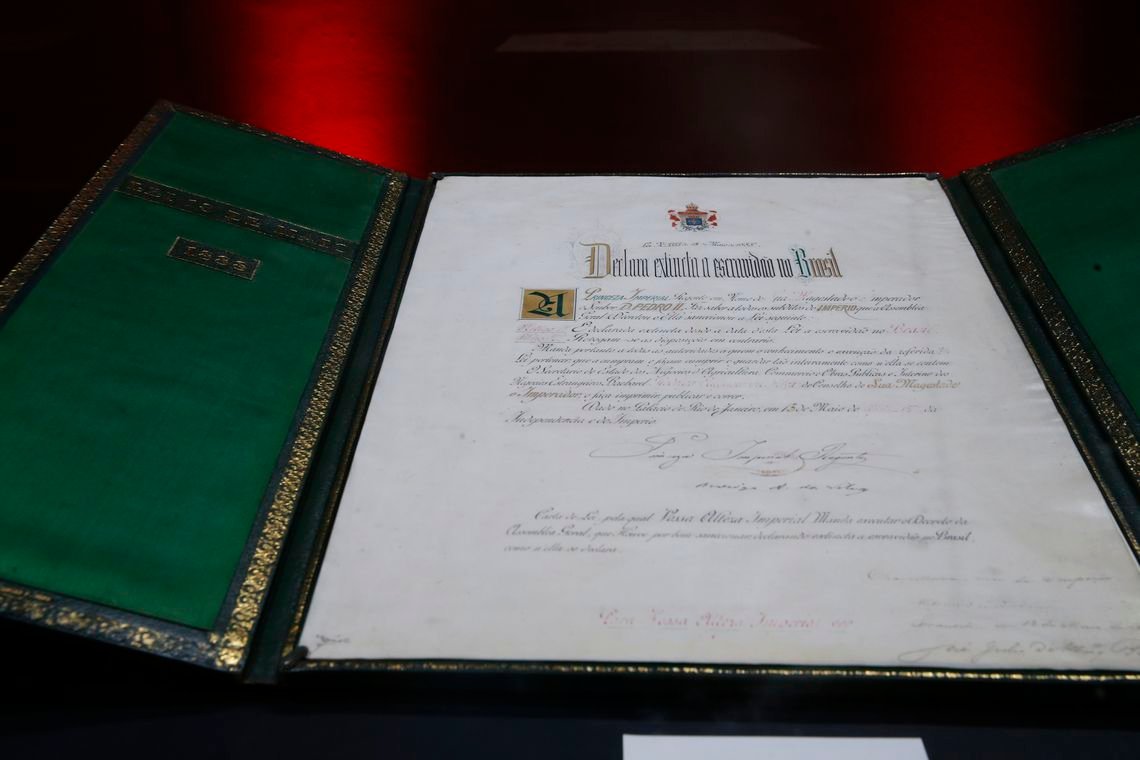 1888
Declara extincta a escravidão no Brasil
A PRINCEZA IMPERIAL Regente em Nome de Sua Magestade o Imperador
o Senhor D. PEDRO II, Faz saber a todos os subditos do IMPERIO que a Assembléa
Geral Decretou e Ella sanccionou a Lei seguinte:
É declarada extincta desde a data desta Lei a escravidão no Brazil.
Revogam-se as disposições em contrario.
Manda portanto a todas as autoridades a quem o conhecimento e execução da referida
Lei pertencer que a cumpram e façam cumprir e guardar tão inteiramente como n'ella se contem
O Secretario de Estado dos Negocios d'Agricultura, Commercio e Obras Publicas e Interino dos
Negocios Estrangeiros, Bacharel do Conselho de Sua Magestade
o Imperador, o faça imprimir, publicar e correr.
Dado no Palacio do Rio de Janeiro, em 13 de Maio de da
Independencia e do Imperio.
Princeza Imperial Regente
Carta de Lei, pela qual Vossa Alteza Imperial Manda executar o Decreto da
Assembléa Geral, que Houve por bem sanccionar declarando extincta a escravidão no Brazil,
como n'ella se declara.
Para Vossa Alteza Imperial ver